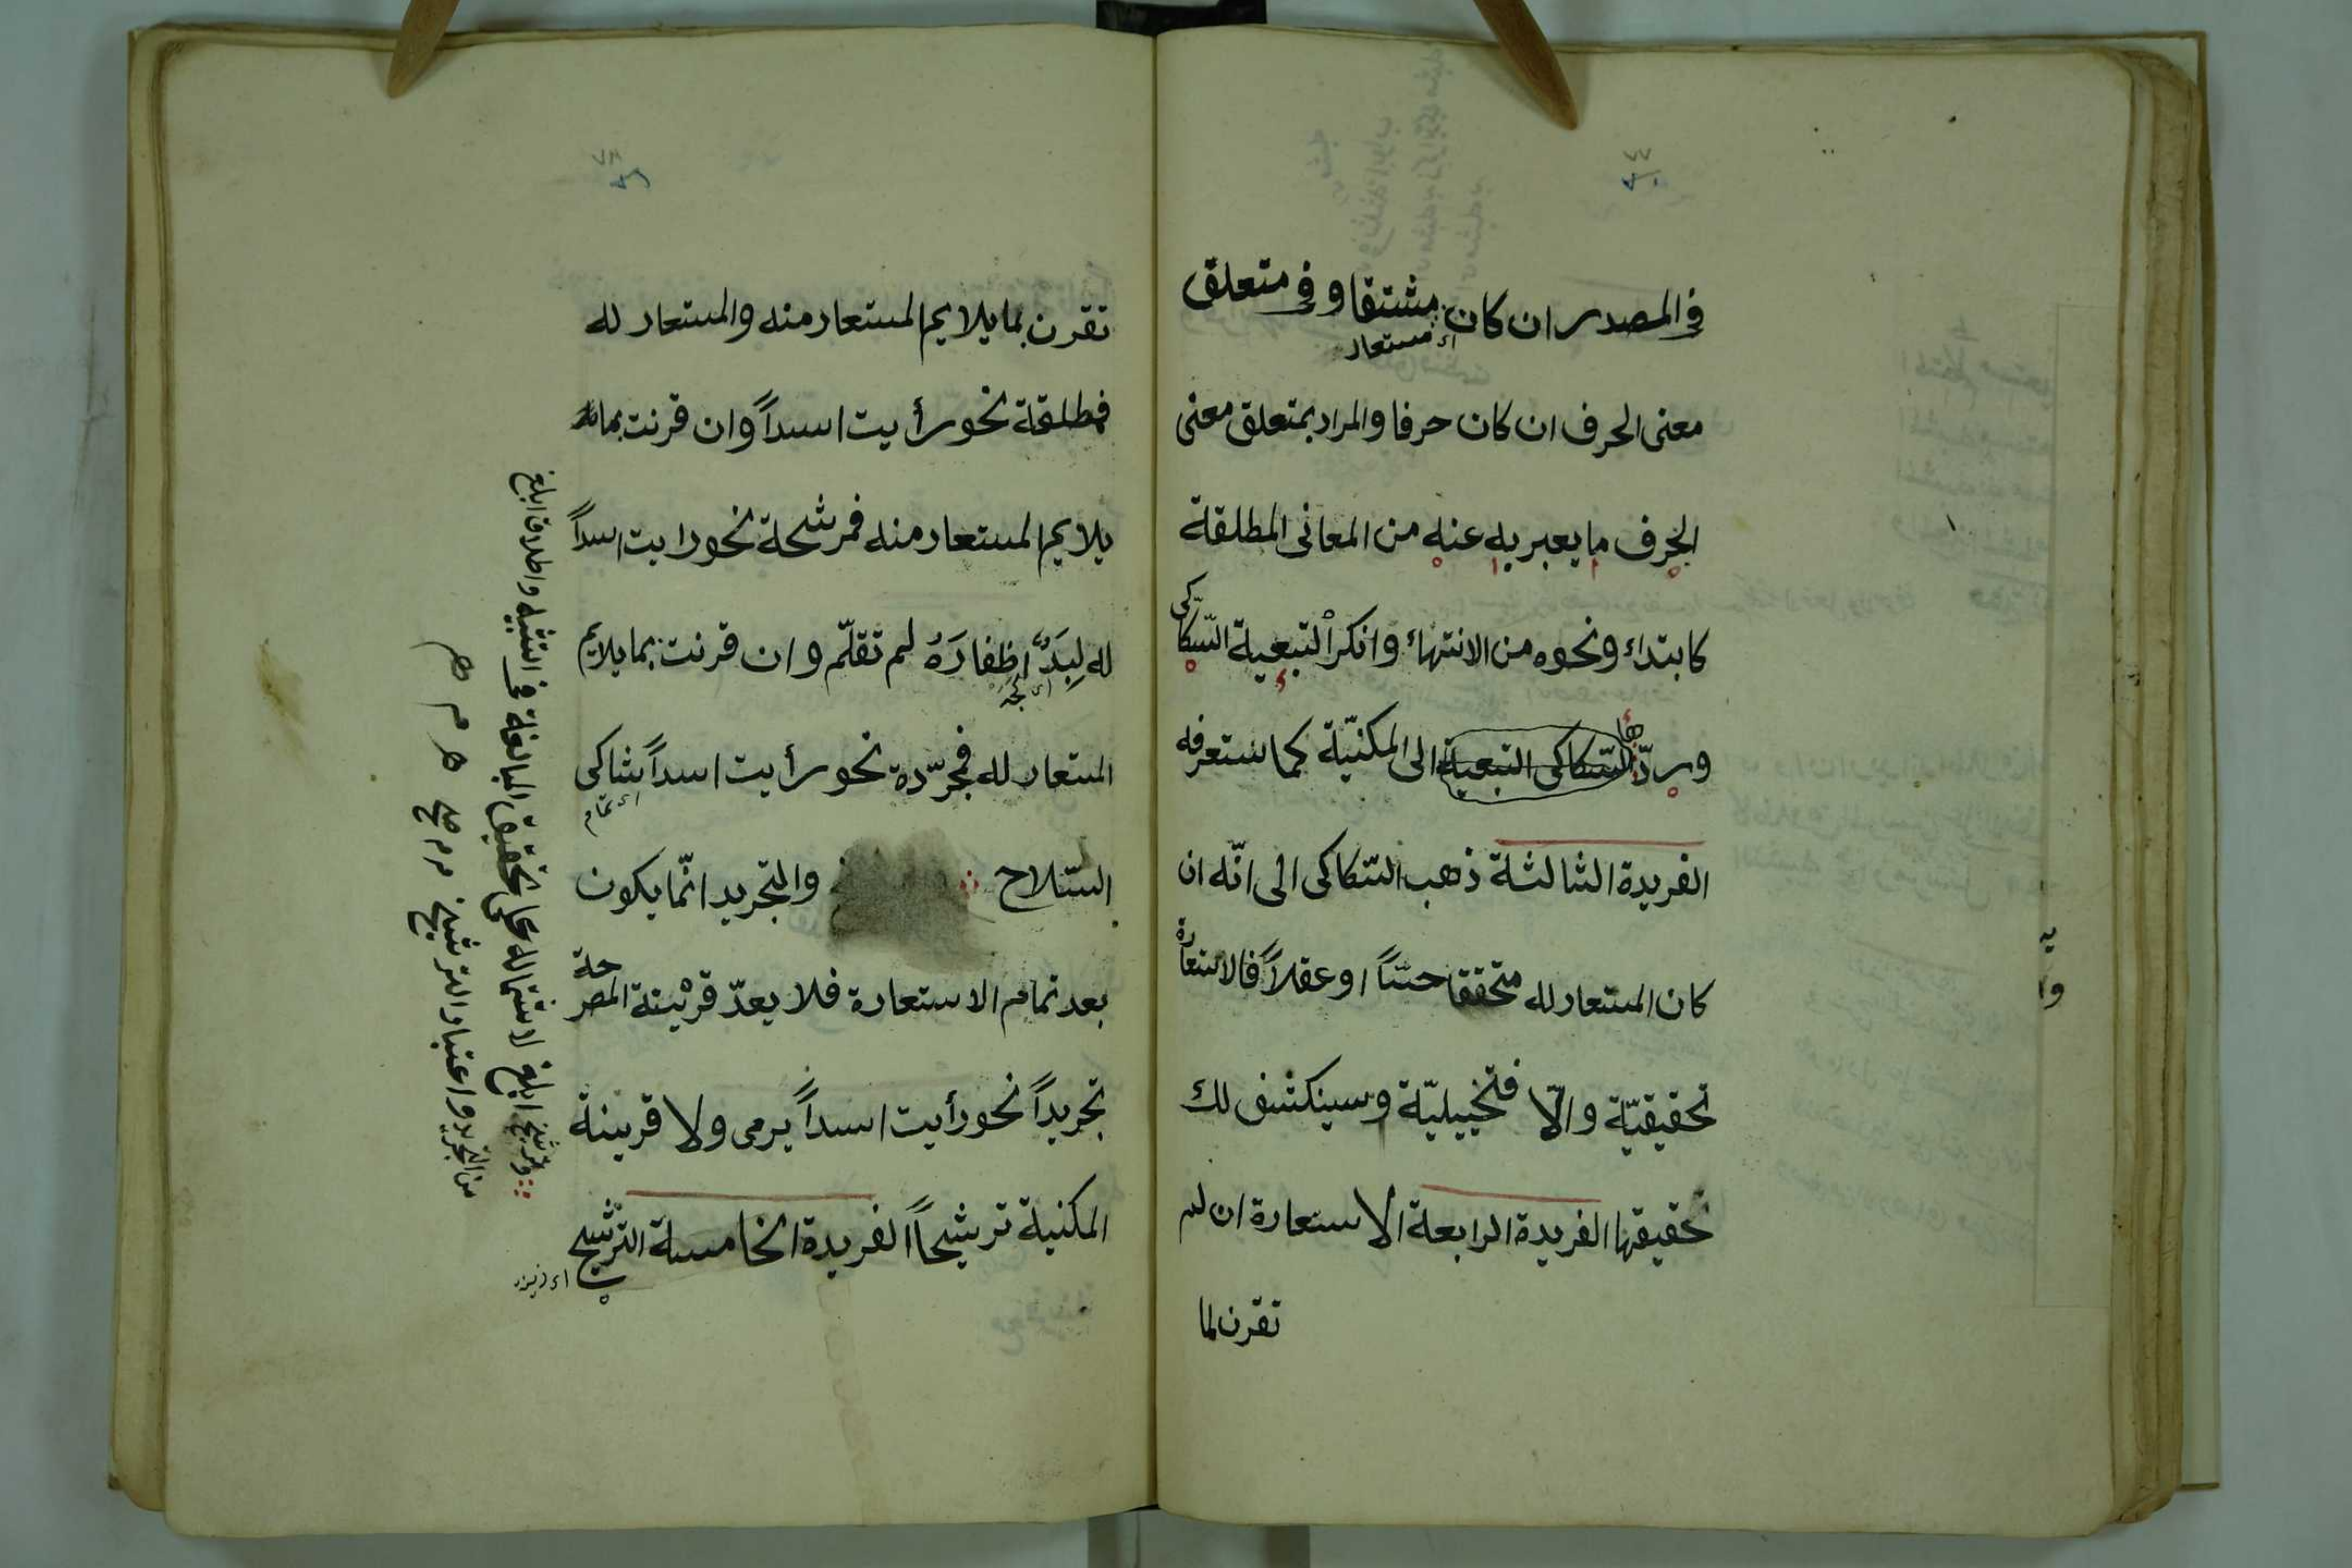 في المصدر ان كان مشتقا و في متعلق
اى مستعار
معنى الحرف ان كان حرفا والمراد بمتعلق معنى
الحرف ما يعبر به عنه من المعانى المطلقة
كابتداء ونحوه من الانتهاء وانكر التبعية السّكاكى
وردّها السّكاكى التبعية الى المكنيّة كما ستعرفه
الفريدة الثالثة ذهب السّكاكى الى انّه ان
كان المستعار له متحققا حسّاً او عقلاً فالاستعارة
تحقيقيّة والّا فتخييليّة وسينكشف لك
تحقيقها الفريدة الرابعة الاستعارة ان لم
تقرن لما
يه
وا
تقرن بما يلايم المستعار منه والمستعار له
فمطلقة نحو رأيت اسداً وان قرنت بما
يلايم المستعار منه فمرشحة نحو رايت اسداً
له لِبَدٌ اظفارَهُ لم تقلّم وان قرنت بما يلايم
المستعار له فمجرّدة نحو رأيت اسداً شاكى
اى تمام
السّلاح والتجريد انّما يكون
بعد تمام الاستعارة فلا يعدّ قرينة المصرحة
تجريداً نحو رأيت اسداً يرمى ولا قرينة
المكنية ترشيحاً الفريدة الخامسة الترشيح
والترشيح ابلغ لاشتماله على تحقيق المبالغة في التشبيه واطلاق ابلغ
من التجريد واعتبار الترشيح